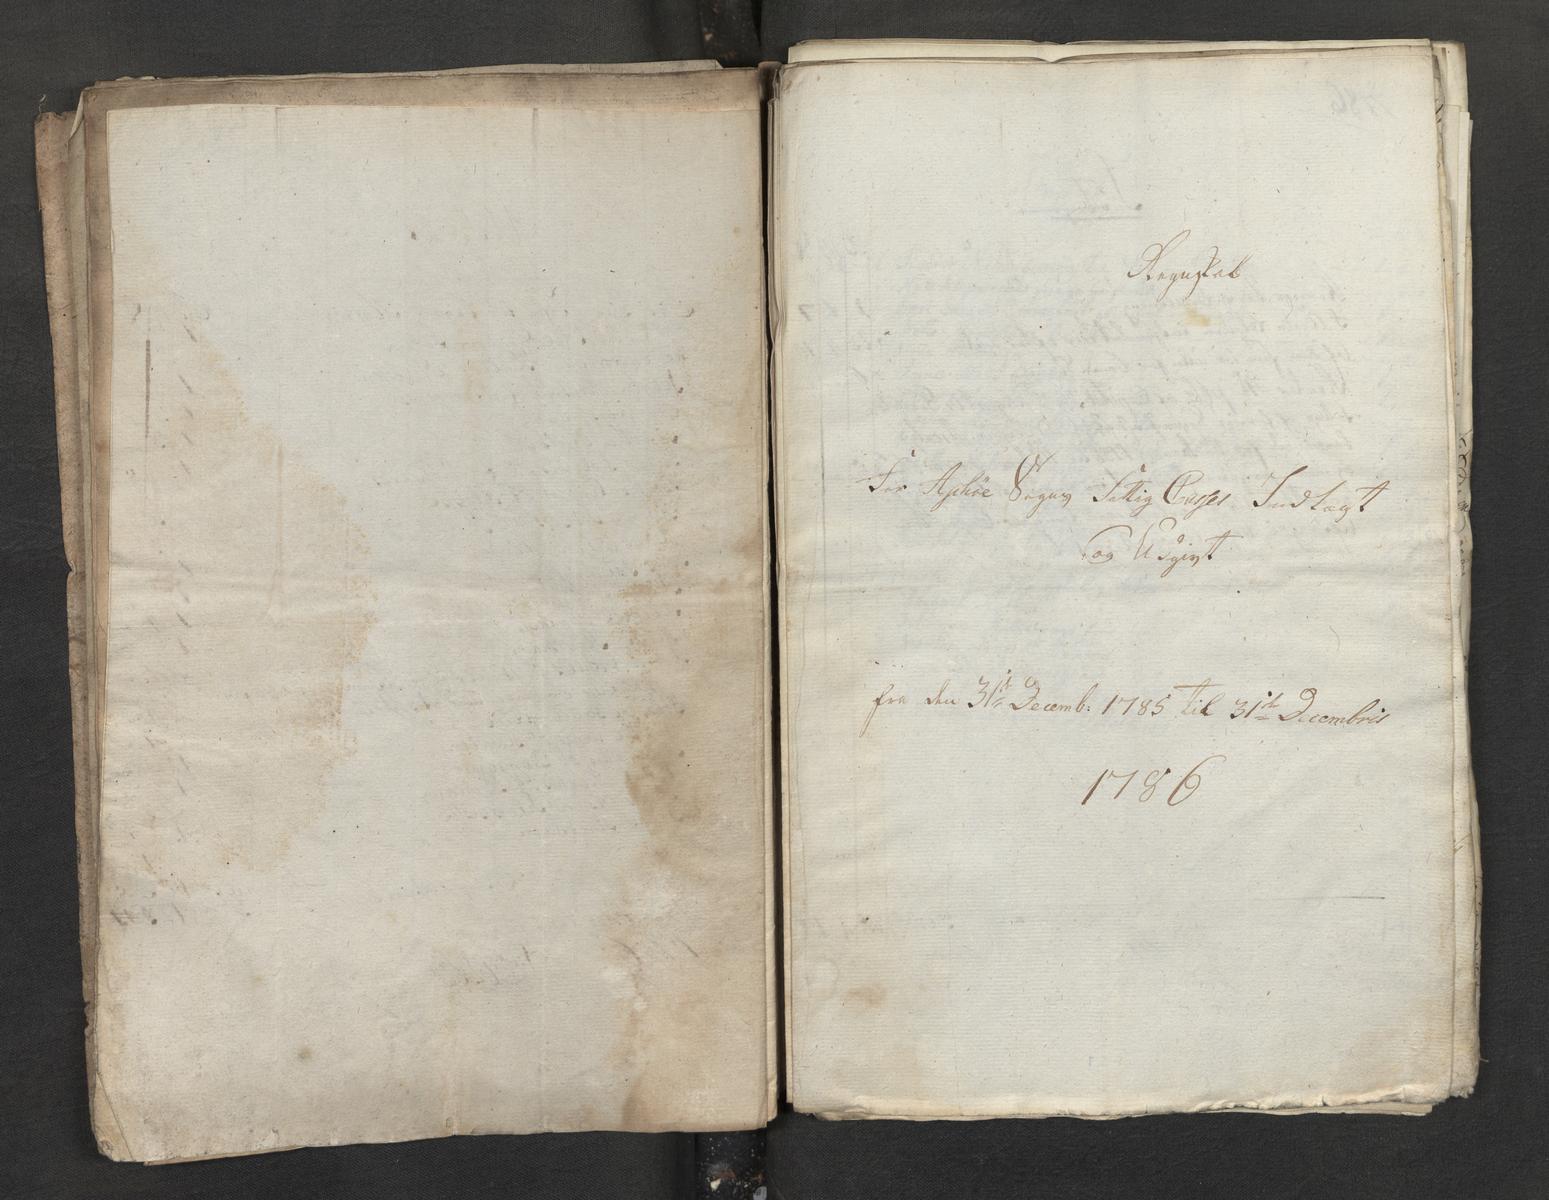 Regnskab
For Askøe Sogns Fattig Casses Indtægt
og Udgivt
fra den 31te Decemb: 1785 til 31te Decembris
1786